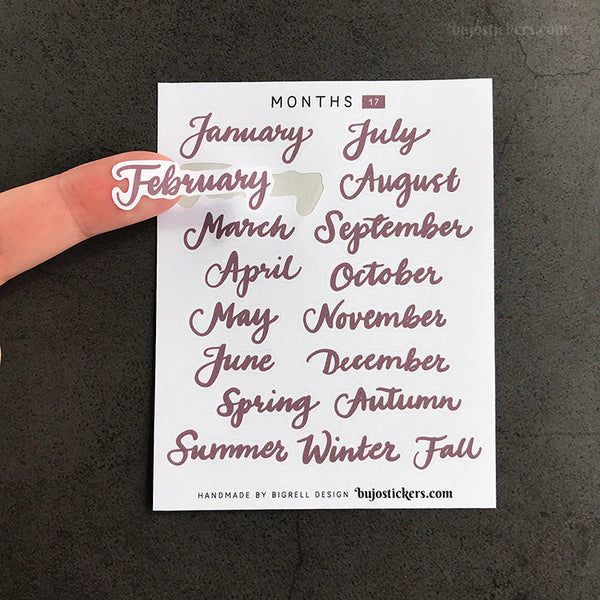 bujostickers.com
MONTHS 17
January July
February August
March September
April October
May November
June December
Spring Autumn
Summer Winter Fall
HANDMADE BY BIGRELL DESIGN bujostickers.com